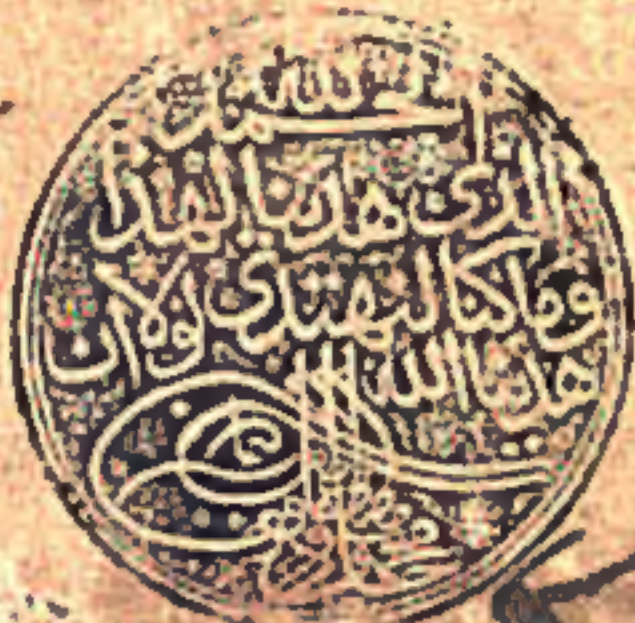 الحمد لله
الذي هدينا لهذا
وما كنا لنهتدي لولا أن
هدينا الله